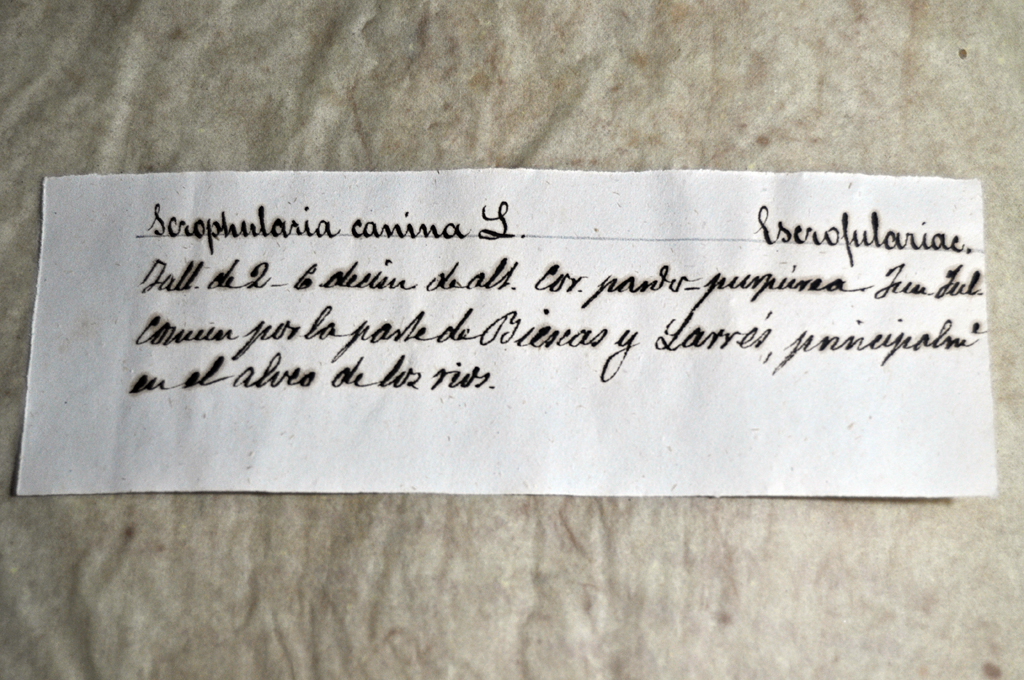 Scrophularia canina L. Escrofulariac.
Tall. de 2-6 decim de alt. Cor. pardo-purpúrea Jun Jul.
Comun por la parte de Biescas y Larrés, principalmᵉ
en el alveo de los rios.